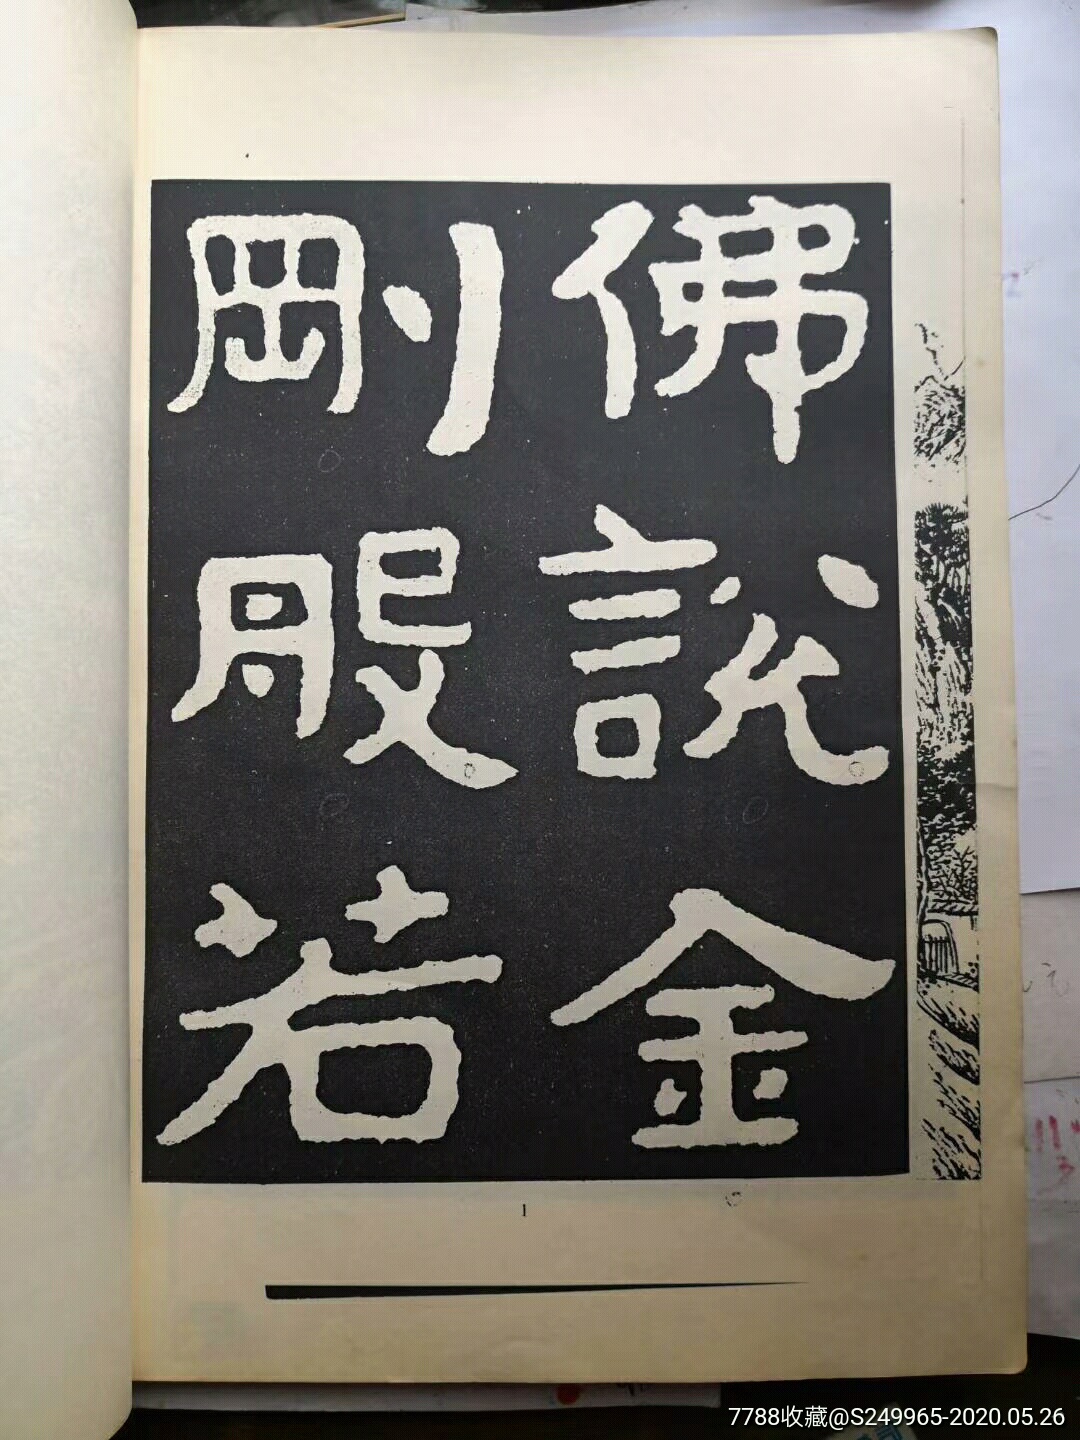 佛説金
剛般若
1
7788收藏@S249965-2020.05.26